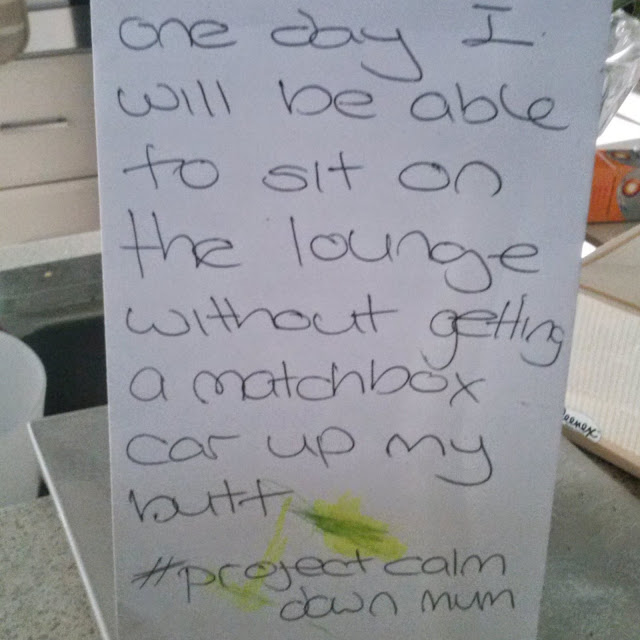 one day I
will be able
to sit on
the lounge
without getting
a matchbox
car up my
butt
#project calm
down mum